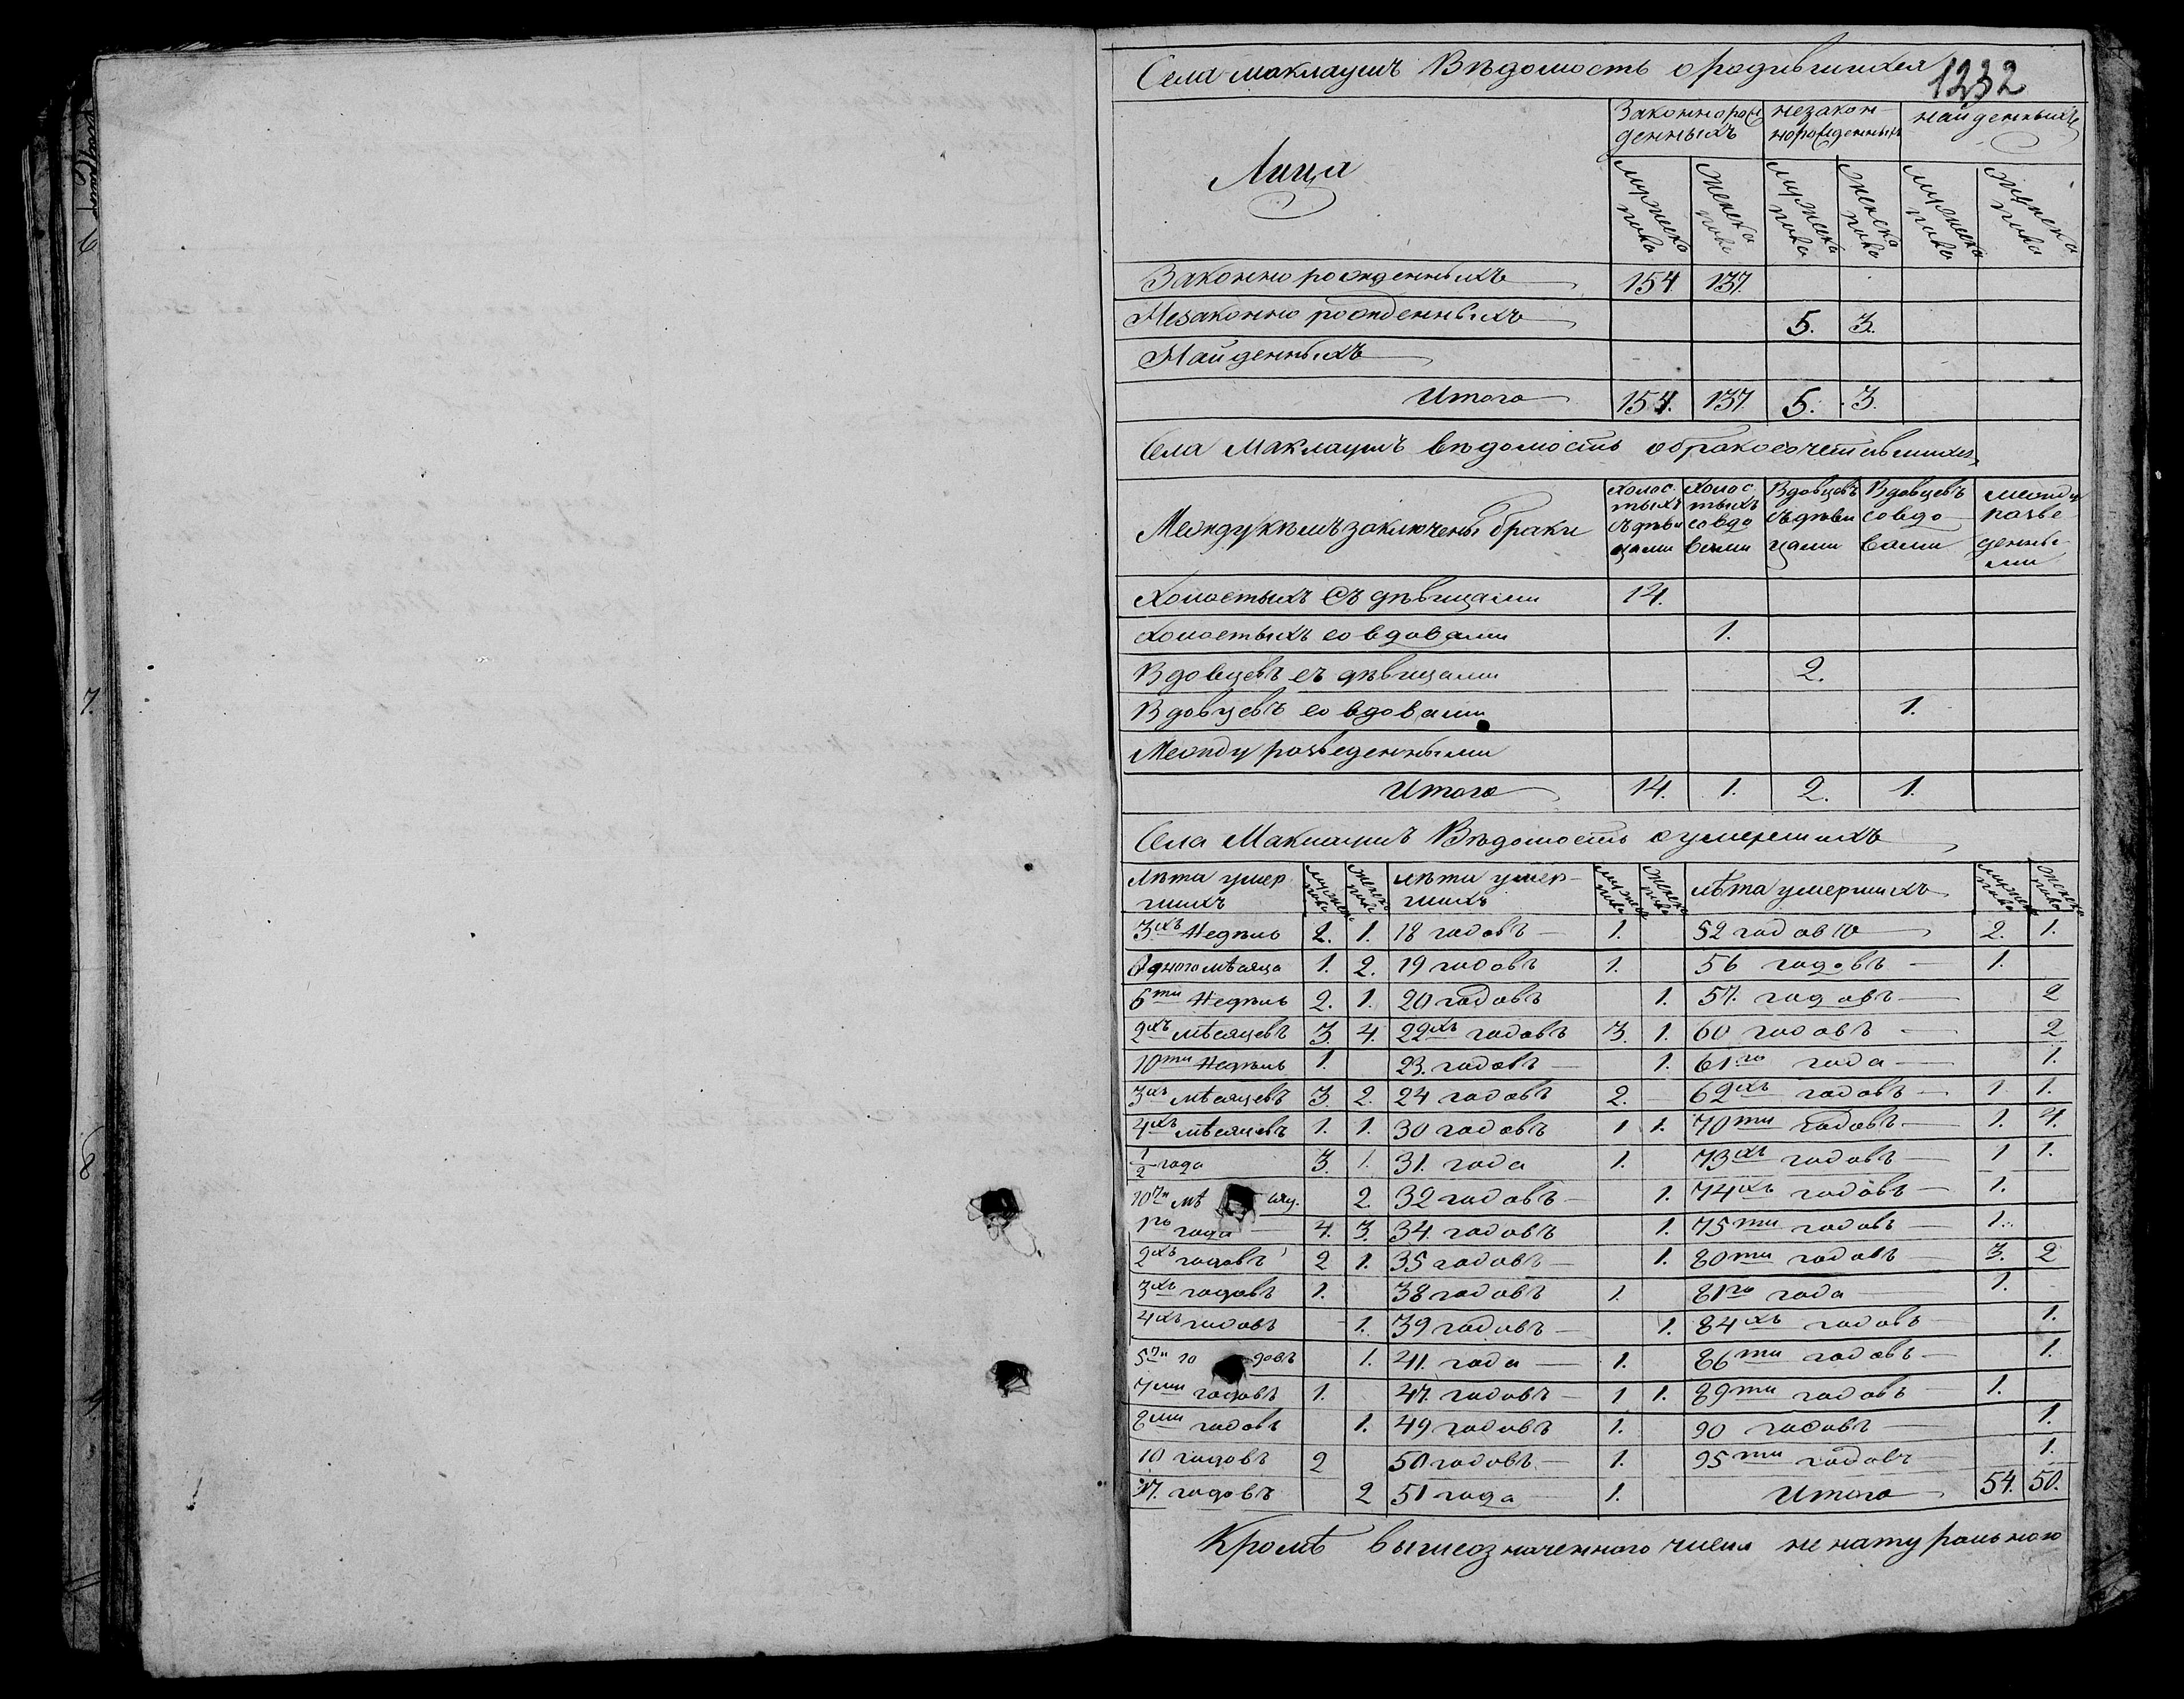 Села Маклаушъ Вѣдомость о родившихся
1232
Лица
Законнорожденныхъ
незаконнорожденныхъ
найденныхъ
мужеска пола
женска пола
мужеска пола
женска пола
мужеска пола
женска пола
Законно рожденныхъ 154. 137.
Незаконно рожденныхъ 5. 3.
Найденныхъ
Итого 154. 137. 5. 3.
Села Маклаушъ вѣдомость о бракосочетавшихся
Между кѣмъ заключены браки
холостыхъ съ дѣвицами
холостыхъ со вдовами
Вдовцевъ съ дѣвицами
Вдовцевъ со вдовами
между разведенными
Холостыхъ съ дѣвицами 14.
холостыхъ со вдовами 1.
Вдовцевъ съ дѣвицами 2.
Вдовцевъ со вдовами 1.
Между разведенными
Итого 14. 1. 2. 1.
Села Маклаушъ Вѣдомость о умершихъ
лѣта умершихъ мужеска пола женска пола лѣта умершихъ мужеска пола женска пола лѣта умершихъ мужеска пола женска пола
3хъ недѣль 2. 1. 18 годовъ 1. 52 годовъ 2. 1.
Одного мѣсяца 1. 2. 19 годовъ 1. 56 годовъ 1.
6ти недѣль 2. 1. 20 годовъ 1. 57. годовъ 2
2хъ мѣсяцевъ 3. 4. 22хъ годовъ 3. 1. 60 годовъ 2
10ти недѣль 1. 23. годовъ 1. 61го года 1.
3хъ мѣсяцевъ 3. 2. 24 годовъ 2. 62хъ годовъ 1 1.
4хъ мѣсяцевъ 1. 1. 30 годовъ 1 1. 70ти годовъ 1. 4.
1/2 года 3. 1. 31. года 1. 73хъ годовъ 1 1.
10ти мѣ сяц. 2. 32 годовъ 1. 74хъ годовъ 1.
1го года 4. 3. 34. годовъ 1. 75ти годовъ 1.
2хъ годовъ 2 1. 35 годовъ 1. 80ти годовъ 3. 2
3хъ годовъ 1. 38 годовъ 1. 81го года 1.
4хъ годовъ 1. 39 годовъ 1. 84хъ годовъ 1.
5ти го довъ 1. 41. года 1. 86ти годовъ 1.
7ми годовъ 1. 47. годовъ 1 1. 89ти годовъ 1.
8ми годовъ 1. 49 годовъ 1. 90 годовъ 1.
10 годовъ 2 50 годовъ 1. 95ти годовъ 1.
17. годовъ 2 51 года 1. Итого 54. 50.
Кромѣ вышеозначеннаго числа не натуральною